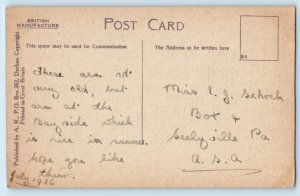 BRITISH
MANUFACTURE
POST CARD
This space may be used for Communication
The Address to be written here
Published by A. R., P.O. Box 382, Durban. Copyright.
Printed in Great Britain
These are not
very old, but
are at the
Bay side which
is nice in summer.
hope you like
them.
July 1926
Miss E. J. Schoch
Box 4
Seelyville Pa
U.S.A